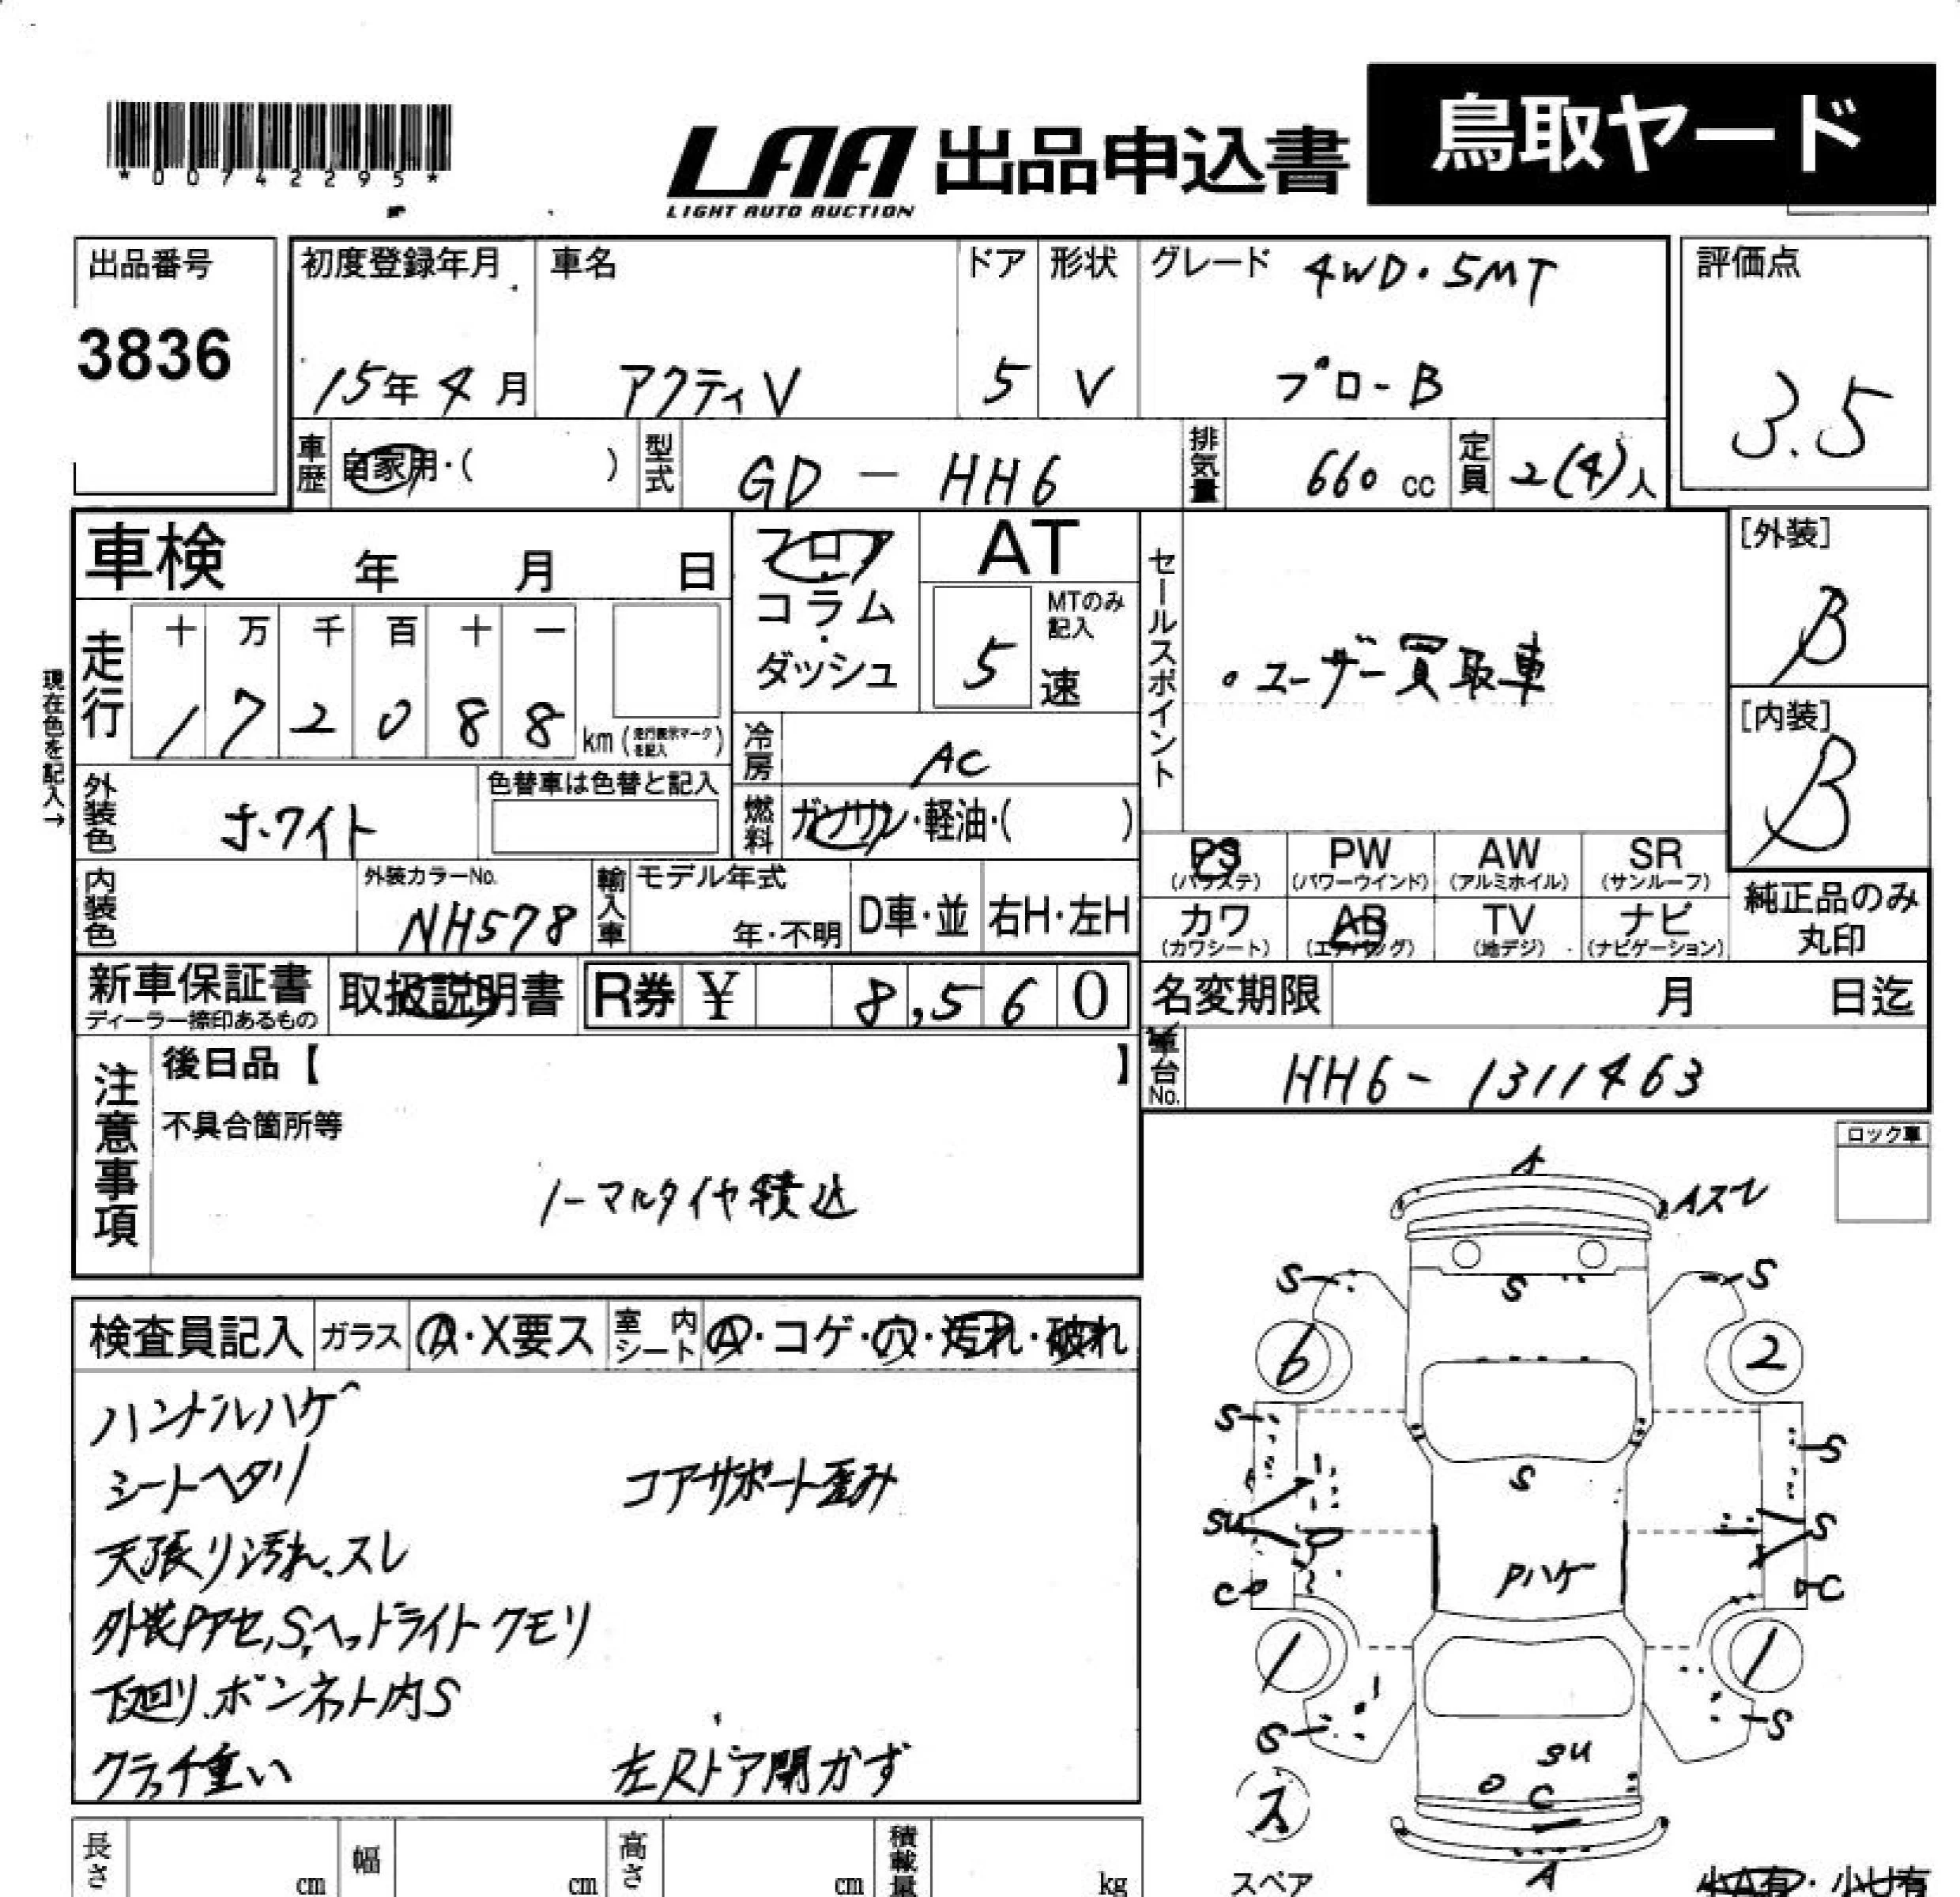 *00742295*
LAA 出品申込書 鳥取ヤード
LIGHT AUTO AUCTION
出品番号
3836
初度登録年月
15年4月
車名
アクティV
ドア
5
形状
V
グレード 4WD・5MT
プロ-B
評価点
3.5
車歴 自家用・( )
型式 GD-HH6
排気量 660 cc
定員 2(4)人
車検 年 月 日
フロア・コラム・ダッシュ
AT
5 速
MTのみ記入
セールスポイント
・ユーザー買取車
[外装]
B
[内装]
B
現在色を記入→
走行
十 万 千 百 十 一
1 7 2 0 8 8 km (走行表示マークを記入)
冷房 AC
外装色 ホワイト
色替車は色替と記入
燃料 ガソリン・軽油・( )
PS (パワステ)
PW (パワーウインド)
AW (アルミホイル)
SR (サンルーフ)
カワ (カワシート)
AB (エアバッグ)
TV (地デジ)
ナビ (ナビゲーション)
純正品のみ丸印
内装色
外装カラーNo.
NH578
輸入車
モデル年式
年・不明
D車・並
右H・左H
新車保証書
ディーラー捺印あるもの
取扱説明書
R券 ¥ 8,560
名変期限 月 日迄
車台No. HH6-1311463
注意事項
後日品【 】
不具合箇所等
ノーマルタイヤ積込
ロック車
検査員記入 ガラス A・X要ス 室内シート A・コゲ・穴・汚れ・破れ
ハンドルハゲ
シートヘタリ コアサポート歪み
天張り汚れ、スレ
外装Pアセ,S,ヘッドライトクモリ
下廻り、ボンネット内S
クラッチ重い 左Rドア開かず
A
Aスレ
S S S
6 2
S S
S
SU S
C Pハゲ C
1 1
S S
SU
C
ス
A
スペア
長さ cm 幅 cm 高さ cm 積載量 kg